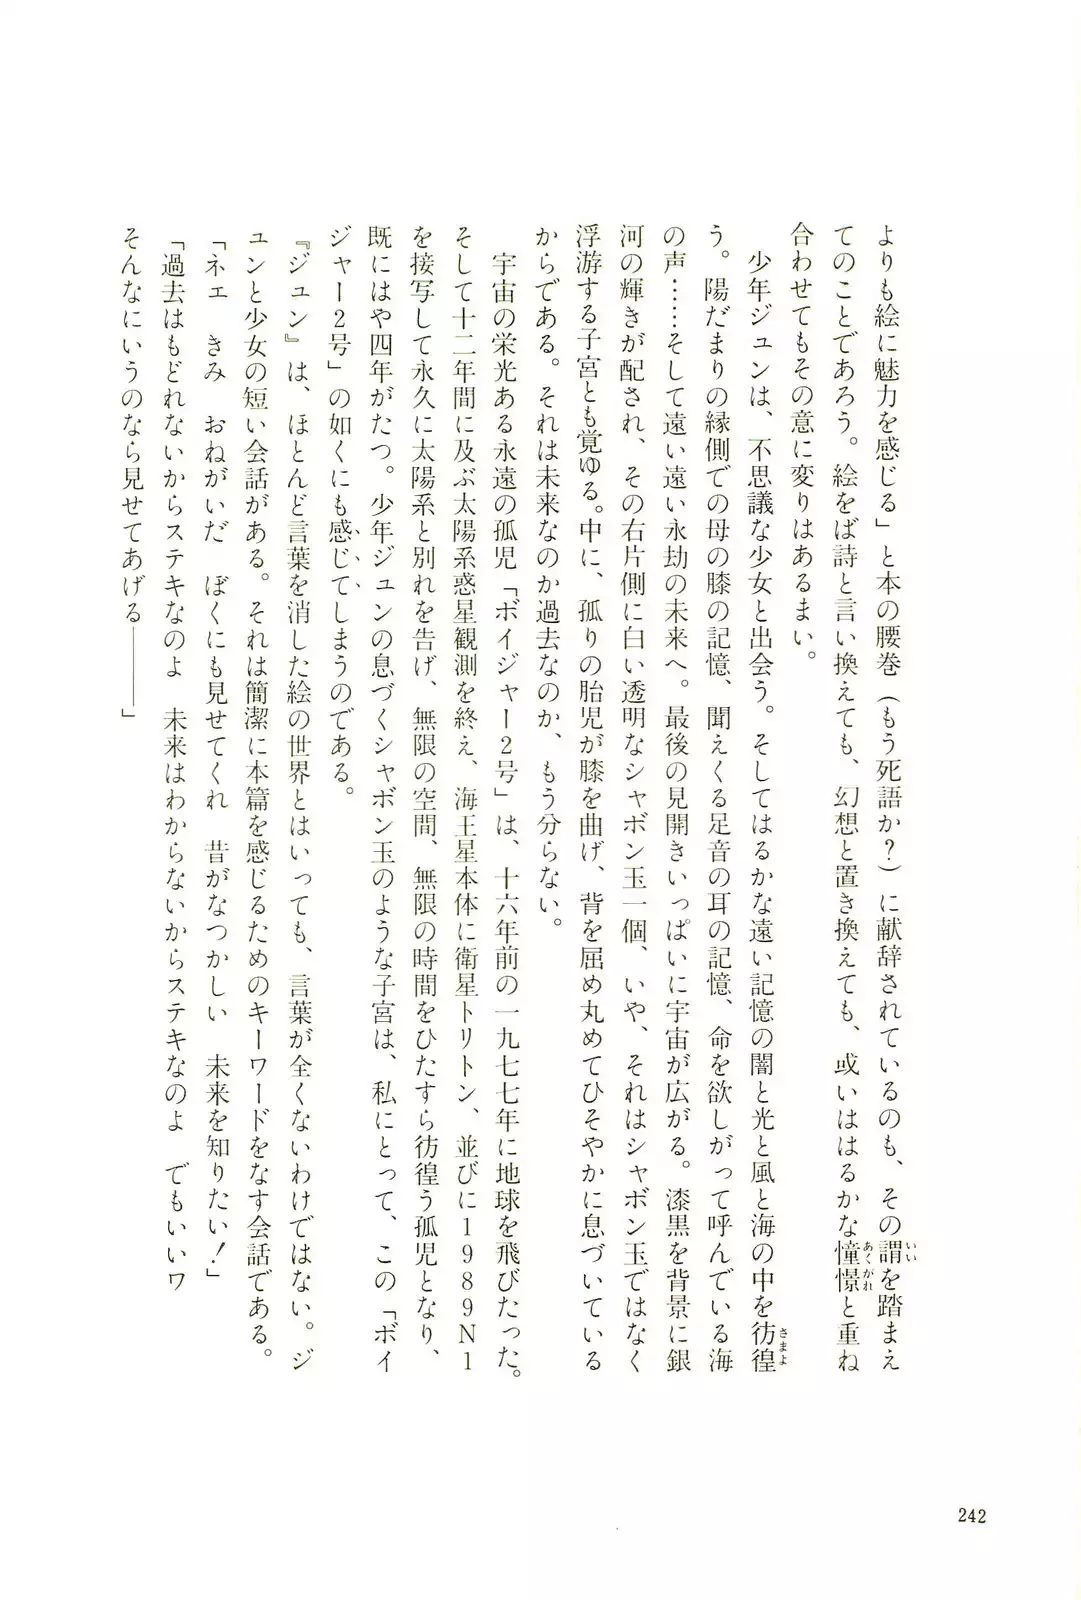 よりも絵に魅力を感じる」と本の腰巻（もう死語か？）に献辞されているのも、その謂を踏まえ
てのことであろう。絵をば詩と言い換えても、幻想と置き換えても、或いははるかな憧憬と重ね
合わせてもその意に変りはあるまい。
　少年ジュンは、不思議な少女と出会う。そしてはるかな遠い記憶の闇と光と風と海の中を彷徨
う。陽だまりの縁側での母の膝の記憶、聞えくる足音の耳の記憶、命を欲しがって呼んでいる海
の声……そして遠い遠い永劫の未来へ。最後の見開きいっぱいに宇宙が広がる。漆黒を背景に銀
河の輝きが配され、その右片側に白い透明なシャボン玉一個、いや、それはシャボン玉ではなく
浮游する子宮とも覚ゆる。中に、孤りの胎児が膝を曲げ、背を屈め丸めてひそやかに息づいている
からである。それは未来なのか過去なのか、もう分らない。
　宇宙の栄光ある永遠の孤児「ボイジャー2号」は、十六年前の一九七七年に地球を飛びたった。
そして十二年間に及ぶ太陽系惑星観測を終え、海王星本体に衛星トリトン、並びに1989N1
を接写して永久に太陽系と別れを告げ、無限の空間、無限の時間をひたすら彷徨う孤児となり、
既にはや四年がたつ。少年ジュンの息づくシャボン玉のような子宮は、私にとって、この「ボイ
ジャー2号」の如くにも感じてしまうのである。
『ジュン』は、ほとんど言葉を消した絵の世界とはいっても、言葉が全くないわけではない。ジ
ュンと少女の短い会話がある。それは簡潔に本篇を感じるためのキーワードをなす会話である。
「ネエ　きみ　おねがいだ　ぼくにも見せてくれ　昔がなつかしい　未来を知りたい！」
「過去はもどれないからステキなのよ　未来はわからないからステキなのよ　でもいいワ
そんなにいうのなら見せてあげる――」
いい
あくがれ
さまよ
242